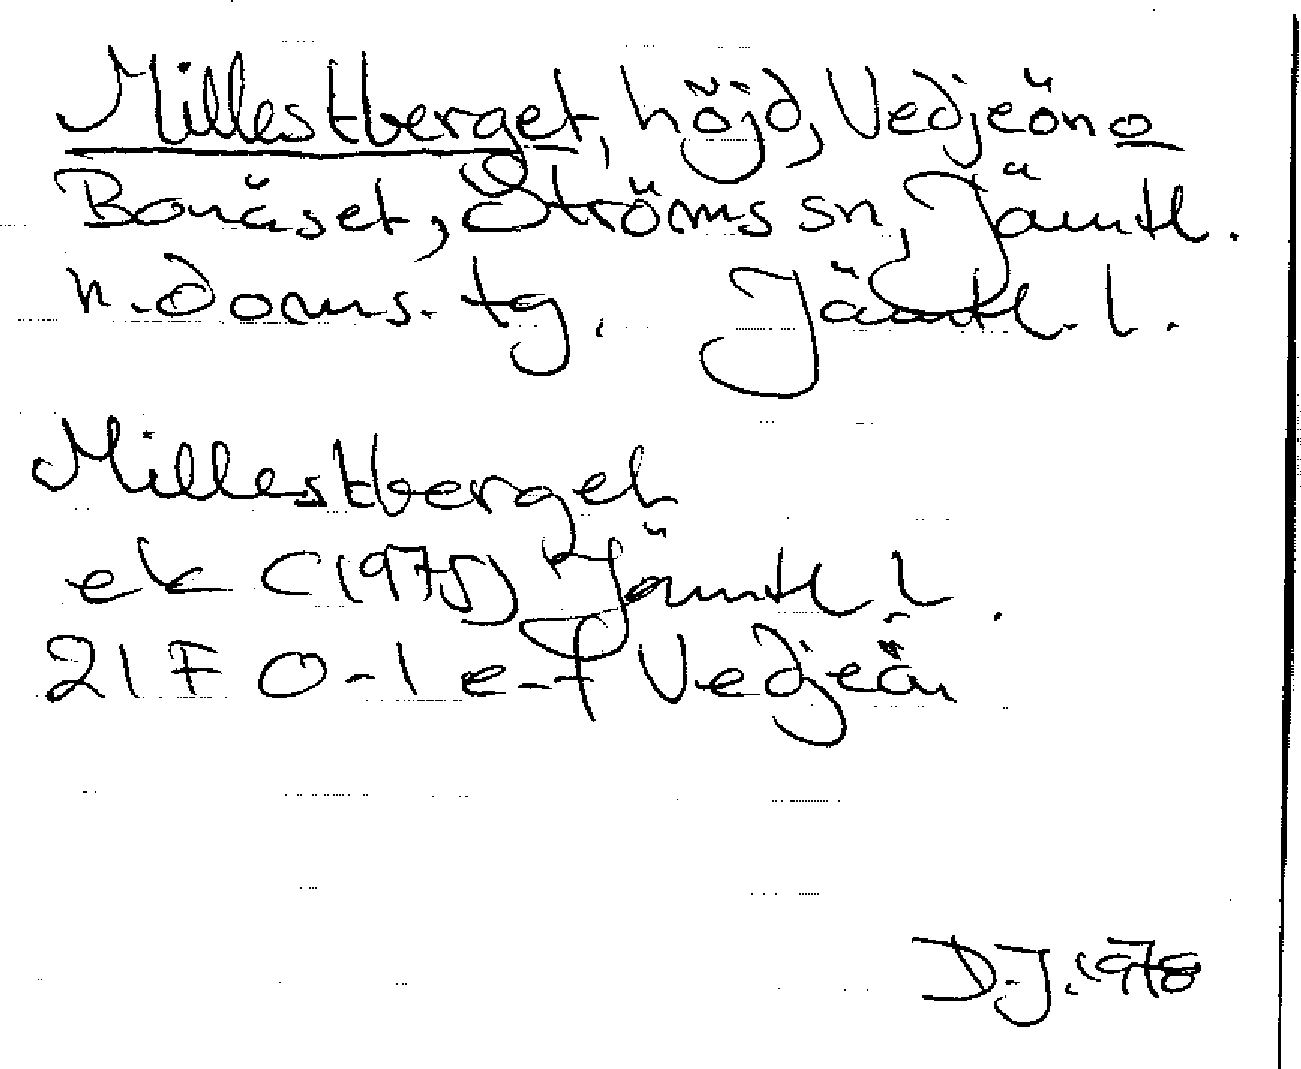 Millestberget, höjd, Vedjeön o
Bonäset, Ströms sn, Jämtl.
n. doms. tg. Jämtl. l.
Millestberget
ek C (1975) Jämtl l.
21 F 0-1 e-f Vedjeön
D.J. 1978